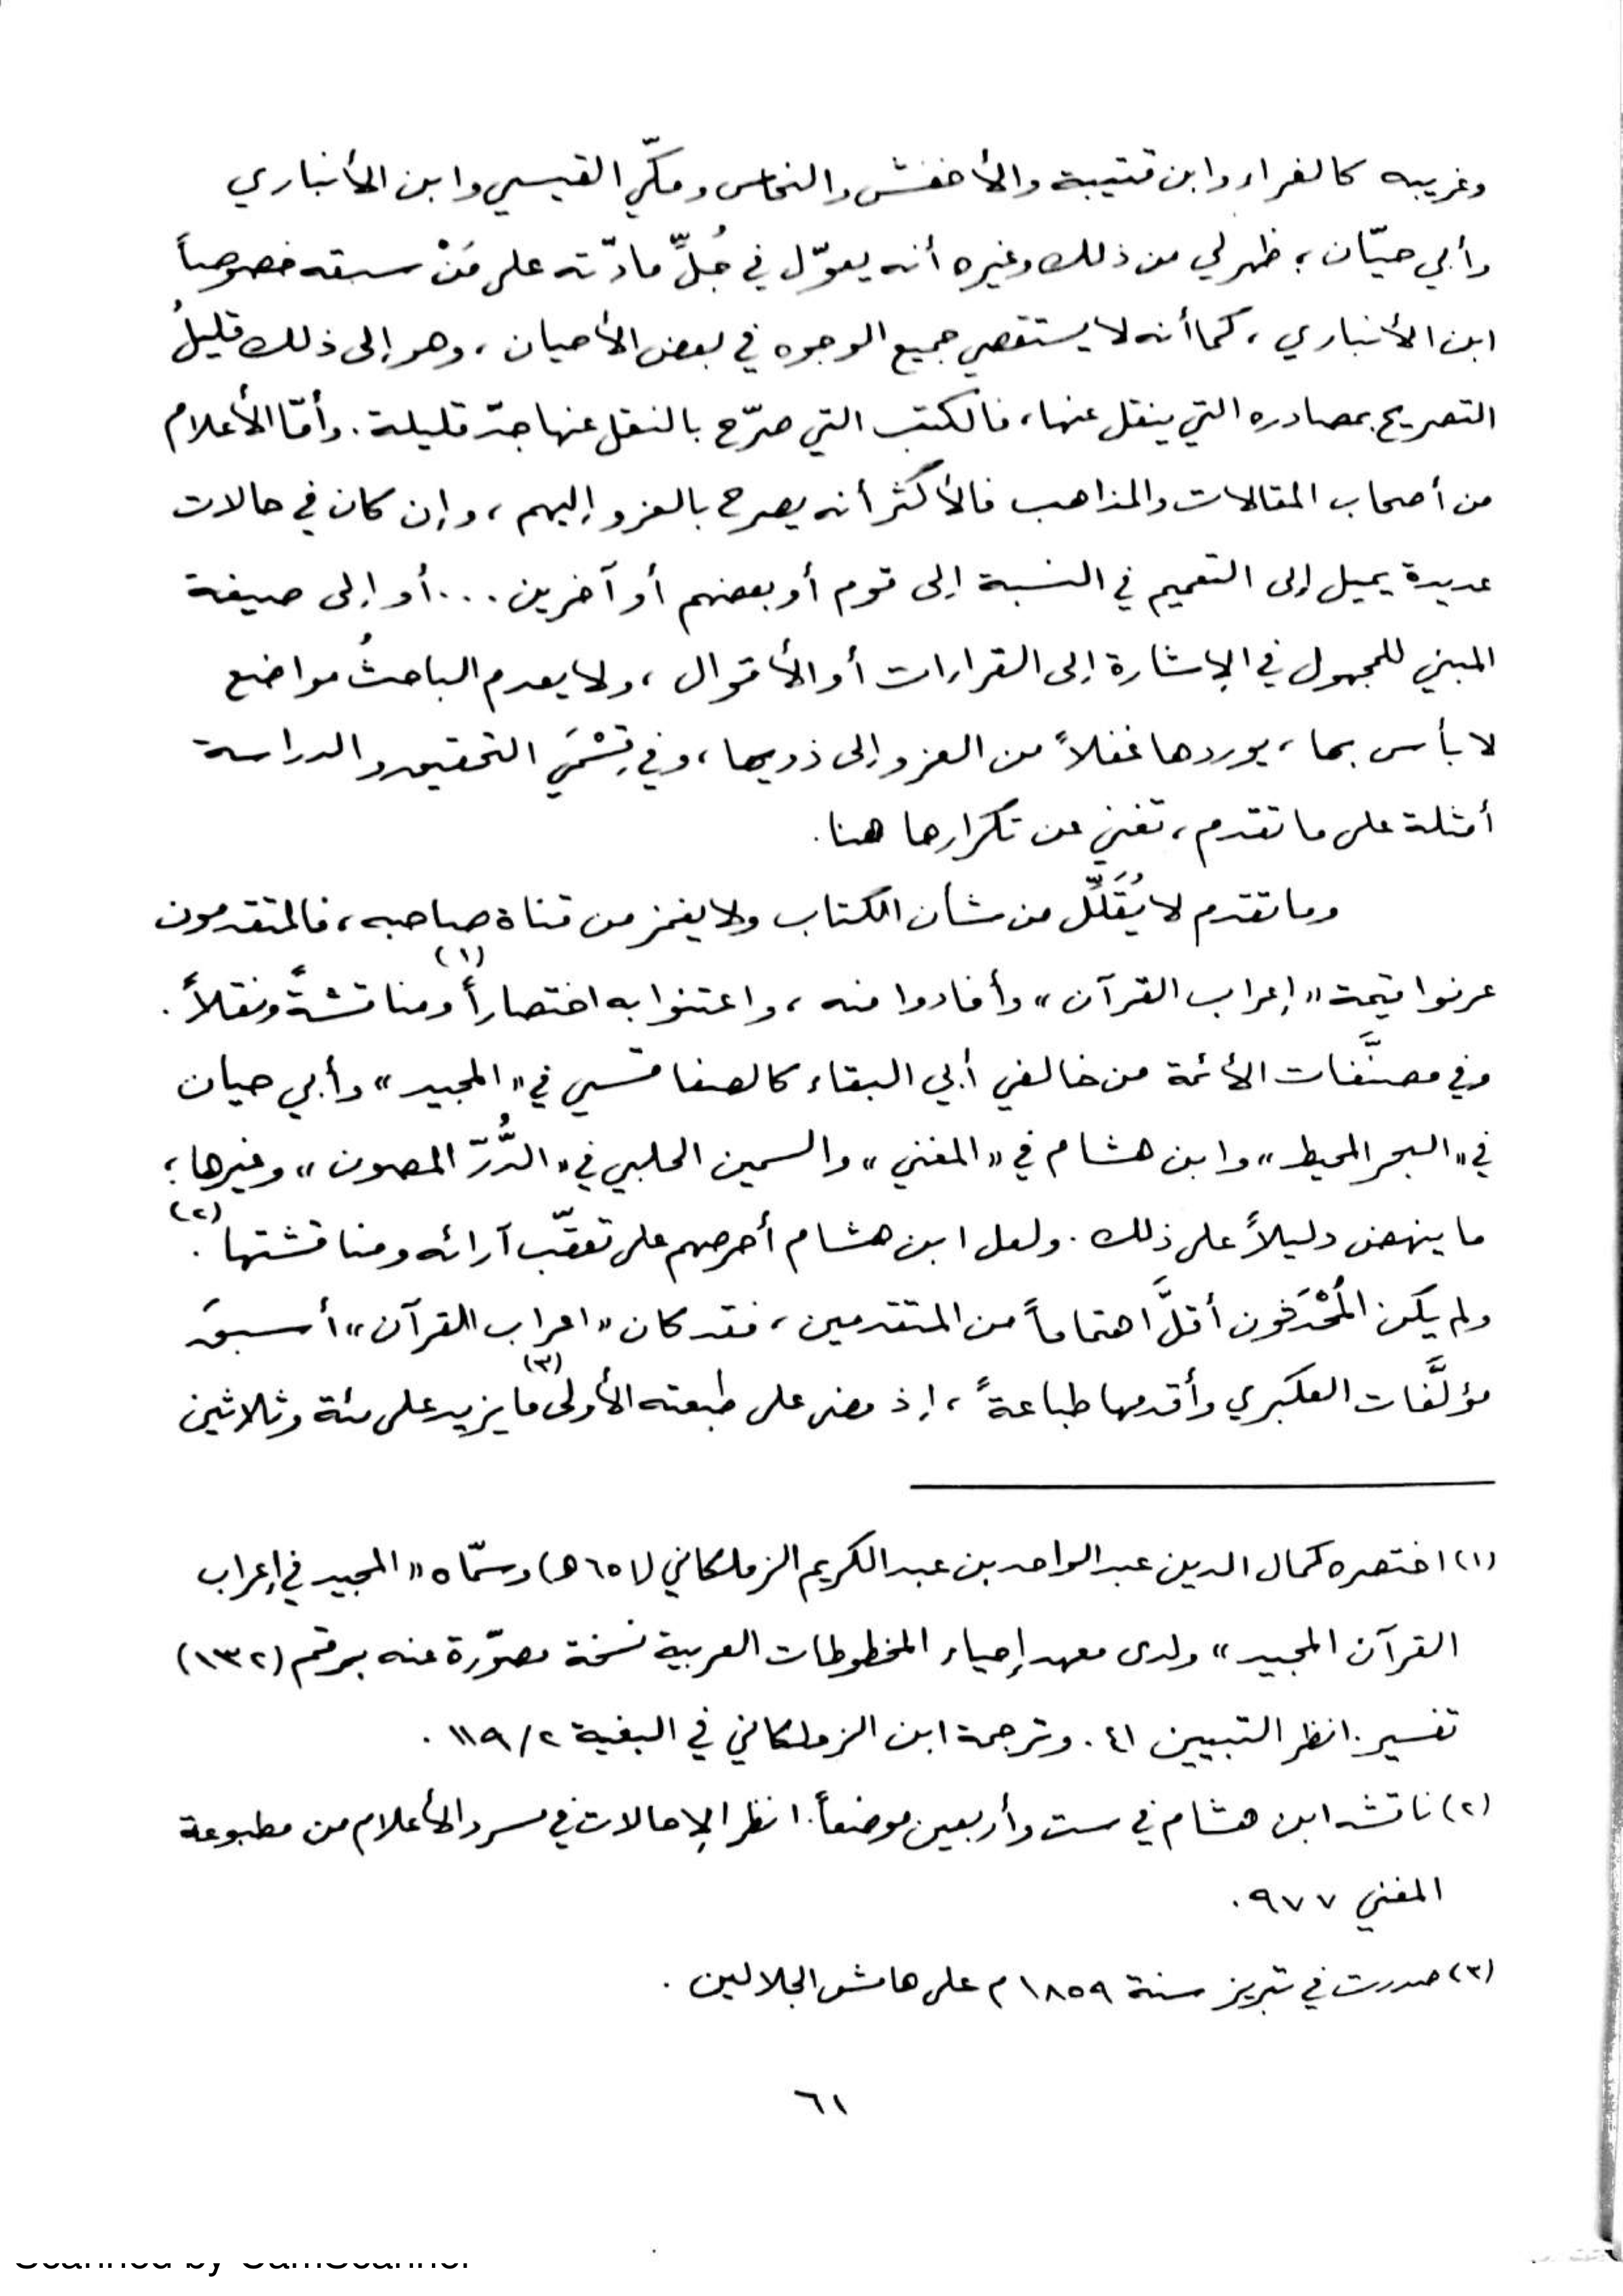 وغريبه كالفراء وابن قتيبة والأخفش والنحاس ومكّي القيسي وابن الأنباري
وأبي حيّان؛ ظهر لي من ذلك وغيره أنه يعوّل في جُلِّ مادّته على مَنْ سبقه خصوصاً
ابن الأنباري، كما أنه لا يستقصي جميع الوجوه في بعض الأحيان، وهو إلى ذلك قليلُ
التصريح بمصادره التي ينقل عنها، فالكتب التي صرّح بالنقل عنها جدّ قليلة. وأمّا الأعلام
من أصحاب المقالات والمذاهب فالأكثر أنه يصرح بالعزو إليهم، وإن كان في حالات
عديدة يميل إلى التعميم في النسبة إلى قوم أو بعضهم أو آخرين... أو إلى صيغة
المبني للمجهول في الإشارة إلى القراءات أو الأقوال، ولا يعدم الباحثُ مواضع
لا بأس بها، يوردها غفلاً من العزو إلى ذويها، وفي قِسْمَي التحقيق والدراسة
أمثلة على ما تقدم، تغني عن تكرارها هنا.
وما تقدم لا يُقَلِّل من شأن الكتاب ولا يغمز من قناة صاحبه، فالمتقدمون
عرفوا قيمة «إعراب القرآن» وأفادوا منه، واعتنوا به اختصاراً(١) ومناقشةً ونقلاً.
وفي مصنَّفات الأئمة من خالفي أبي البقاء كالصفاقسي في «المجيد» وأبي حيان
في «البحر المحيط» وابن هشام في «المغني» والسمين الحلبي في «الدُّرّ المصون» وغيرها؛
ما ينهض دليلاً على ذلك. ولعل ابن هشام أحرصهم على تعقّب آرائه ومناقشتها(٢).
ولم يكن المُحْدَثون أقلَّ اهتماماً من المتقدمين، فقد كان «اعراب القرآن» أسبقَ
مؤلَّفات العكبري وأقدمها طباعةً، إذ مضى على طبعته الأولى(٣) ما يزيد على مئة وثلاثين
(١) اختصره كمال الدين عبد الواحد بن عبد الكريم الزملكاني (٦٥١ هـ) وسمّاه «المجيد في إعراب
القرآن المجيد» ولدى معهد إحياء المخطوطات العربية نسخة مصوّرة عنه برقم (١٣٢)
تفسير. انظر التبيين ٤١. وترجمة ابن الزملكاني في البغية ٢/١١٩.
(٢) ناقشه ابن هشام في ست وأربعين موضعاً. انظر الإحالات في مسرد الأعلام من مطبوعة
المغني ٩٧٧.
(٣) صدرت في تبريز سنة ١٨٥٩ م على هامش الجلالين.
٦١
Scanned by CamScanner